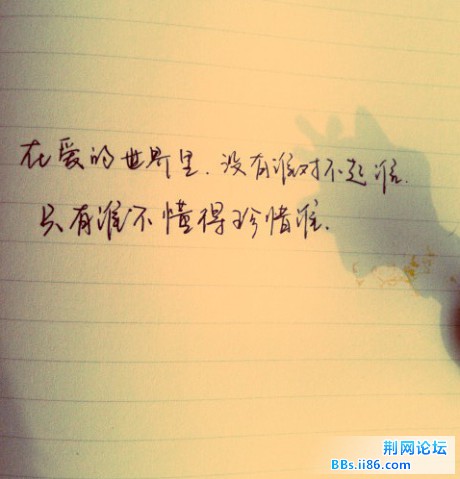 在爱的世界里.没有谁对不起谁.
只有谁不懂得珍惜谁.
荆网论坛
BBs.ii86.com